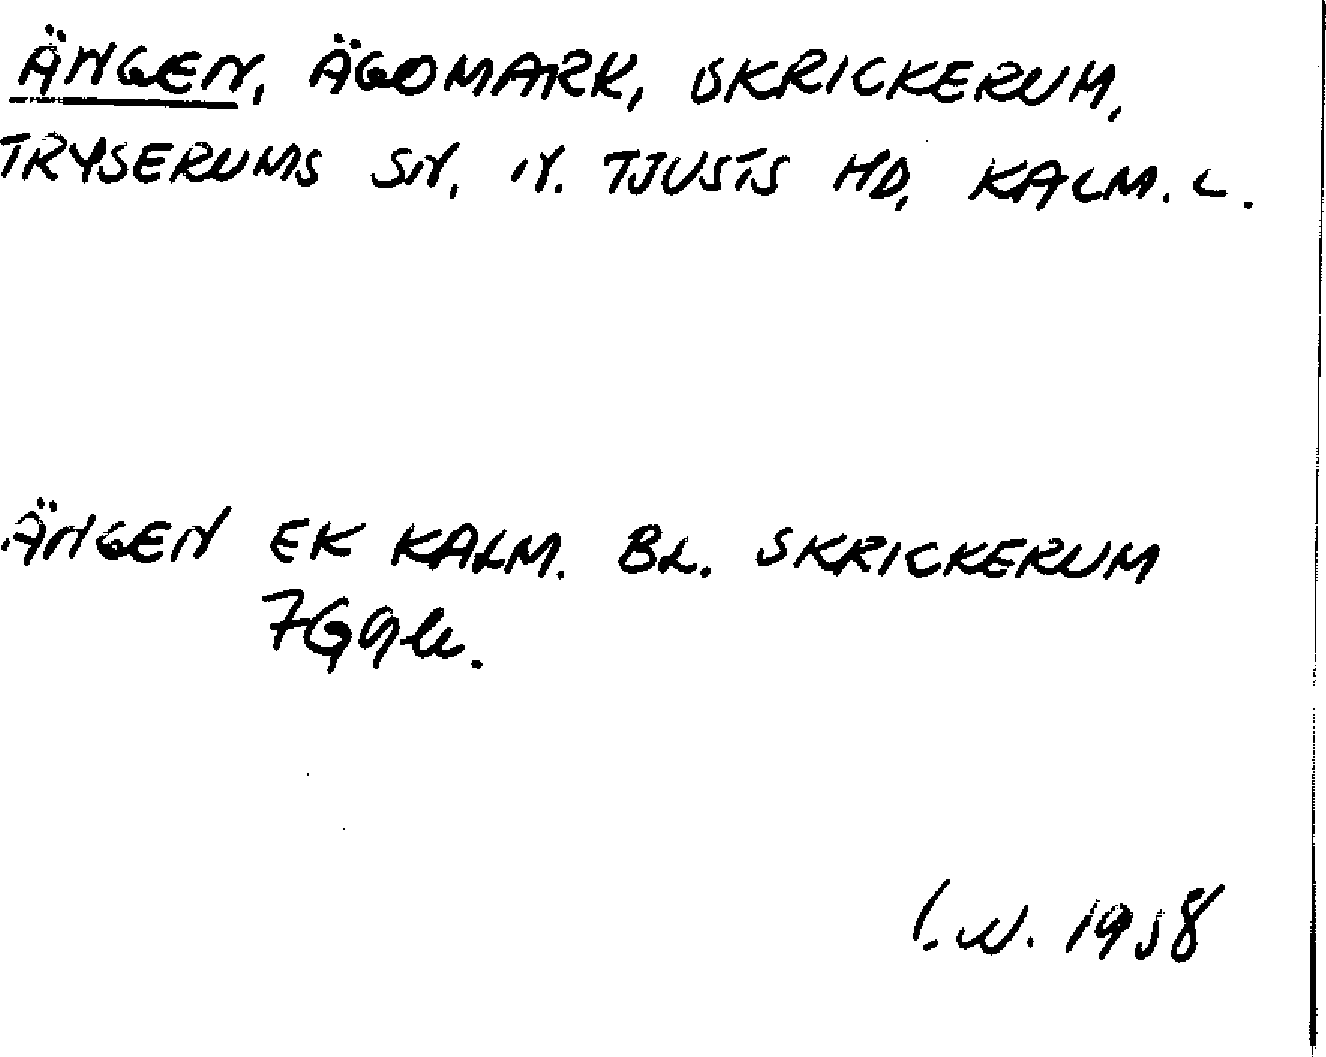 ÄNGEN, ÄGOMARK, SKRICKERUM,
TRYSERUMS SN. N. TJUSTS HD, KALM. L.
ÄNGEN EK KALM. BL. SKRICKERUM
7G9
1958